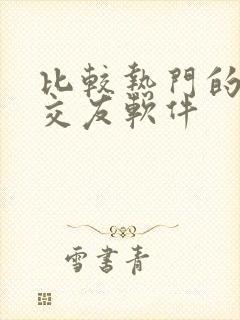 比較熱門的
交友軟件
雪書青